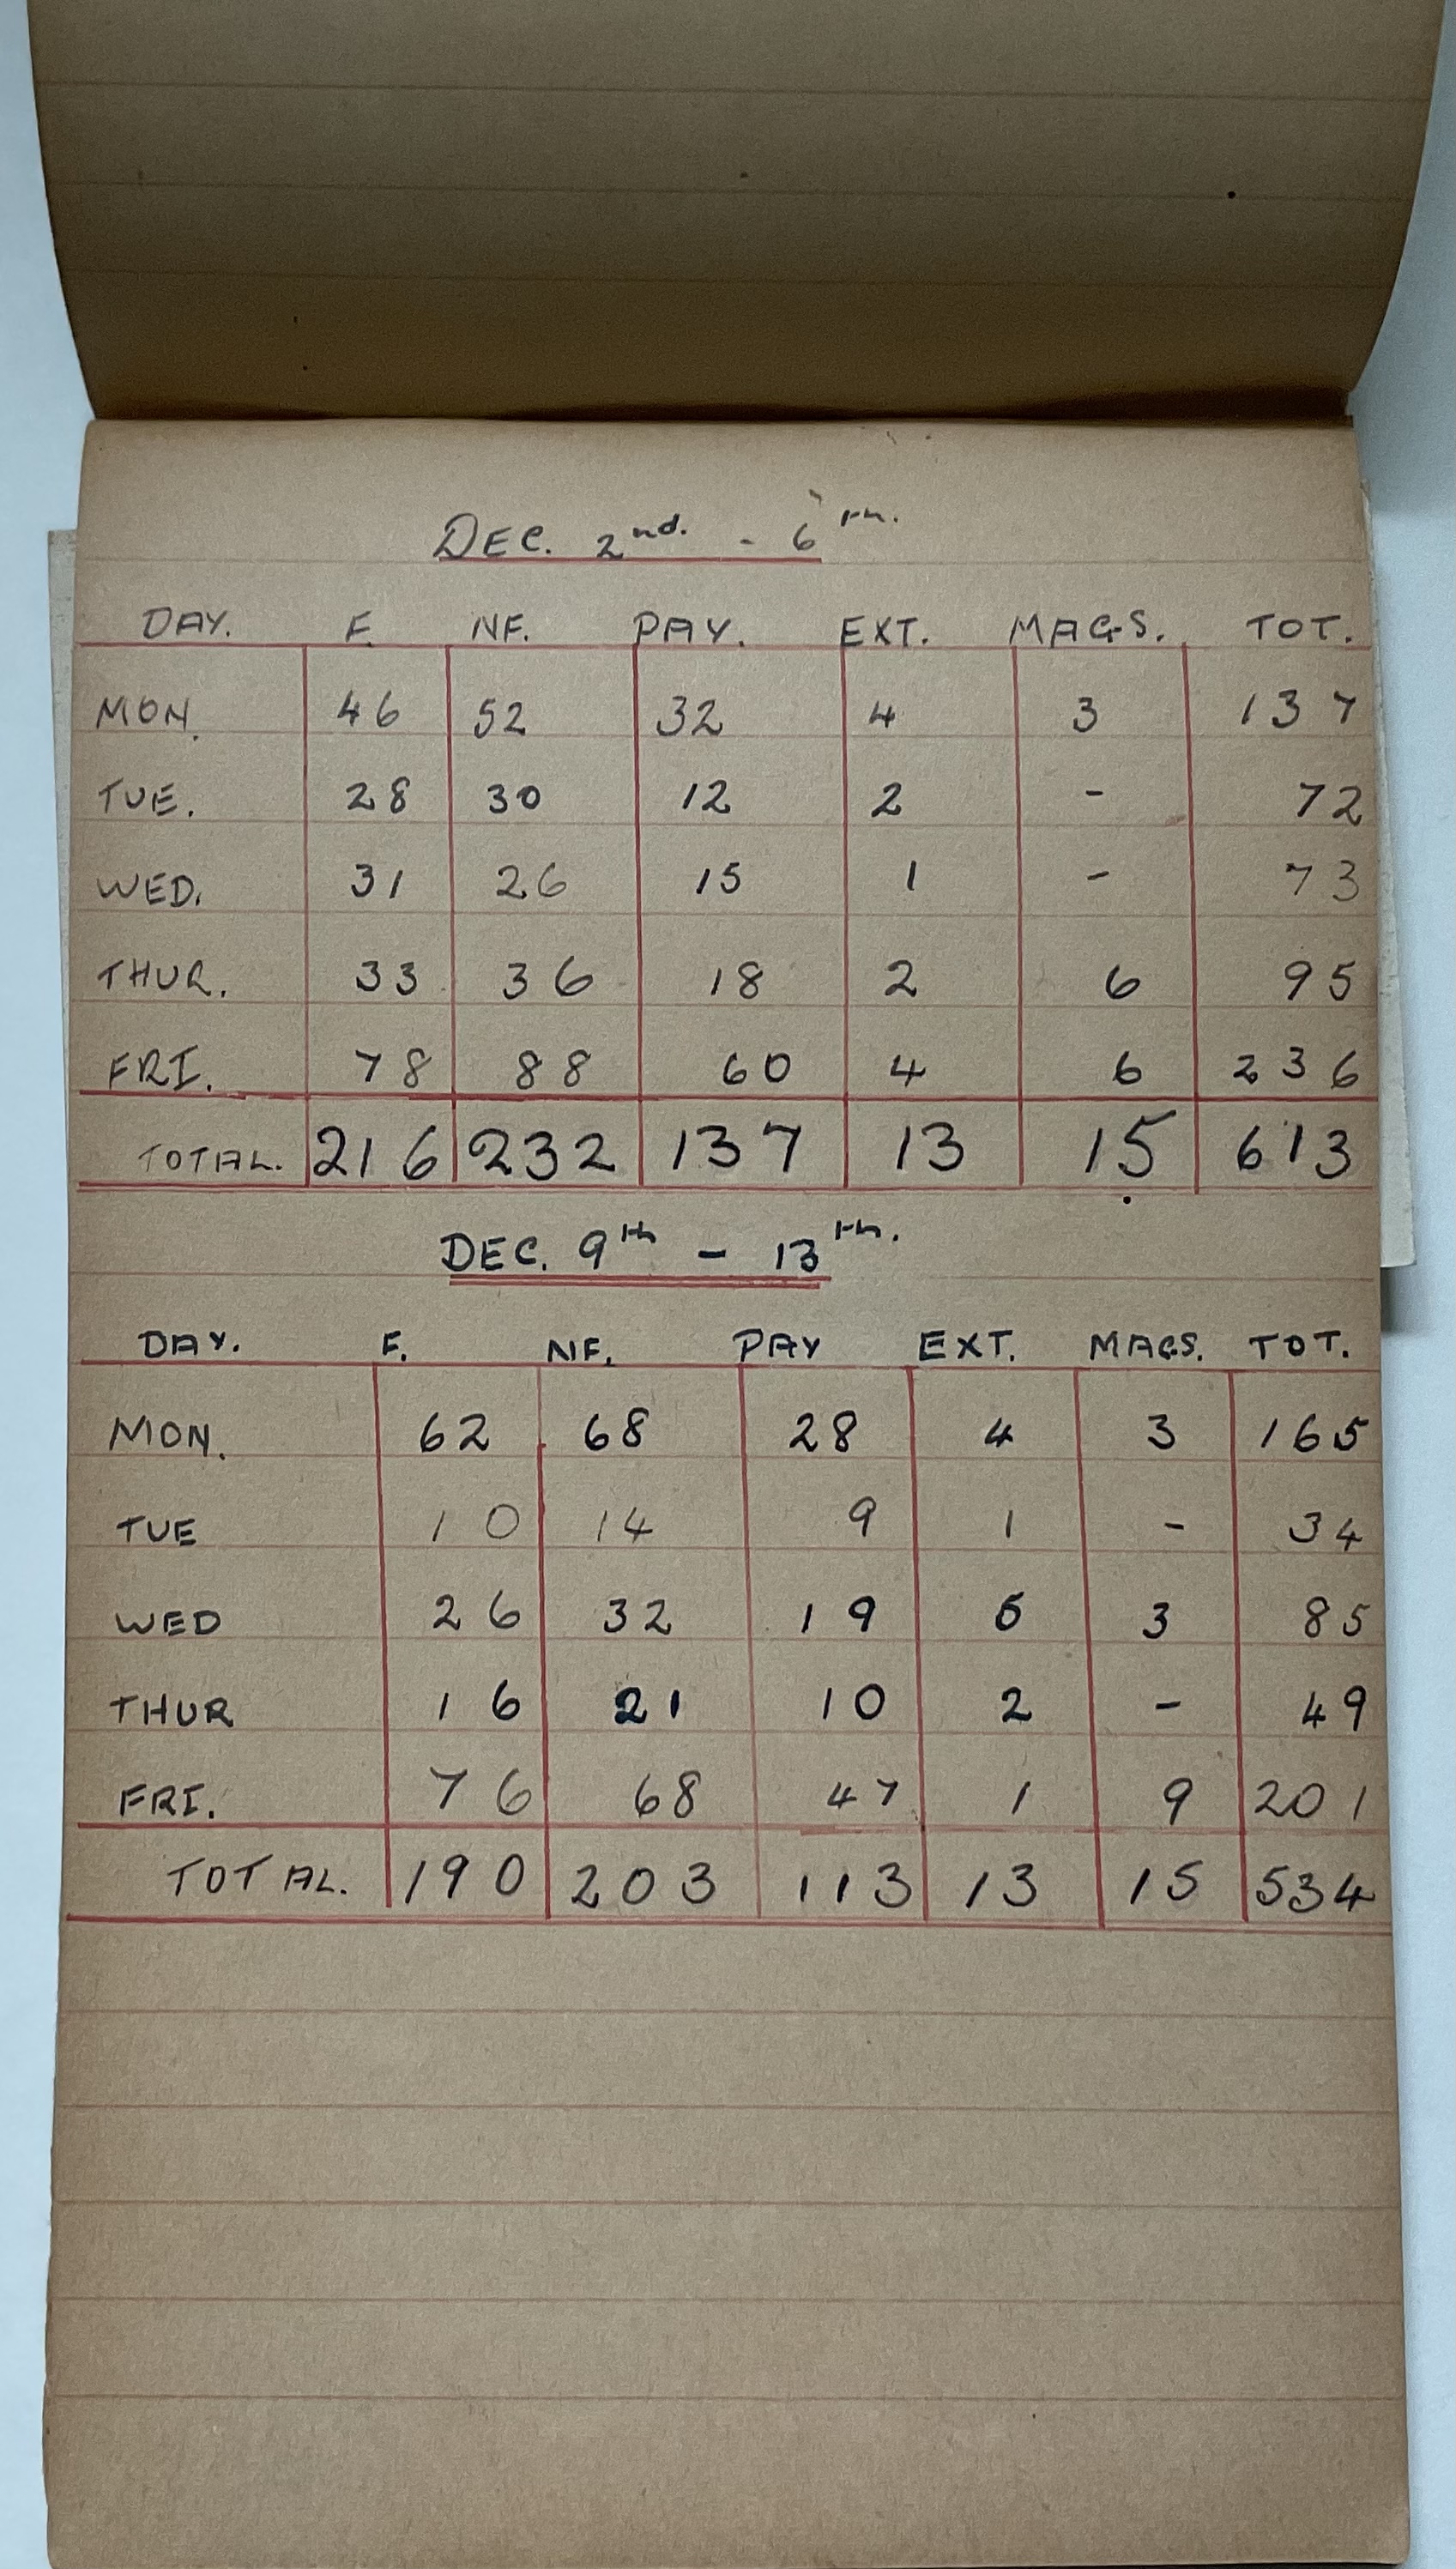 DEC. 2nd. - 6th.
DAY. F. NF. PAY. EXT. MAGS. TOT.
MON. 46 52 32 4 3 137
TUE. 28 30 12 2 - 72
WED. 31 26 15 1 - 73
THUR. 33 36 18 2 6 95
FRI. 78 88 60 4 6 236
TOTAL. 216 232 137 13 15 613
DEC. 9th - 13th.
DAY. F. NF. PAY EXT. MAGS. TOT.
MON. 62 68 28 4 3 165
TUE 10 14 9 1 - 34
WED 26 32 19 5 3 85
THUR 16 21 10 2 - 49
FRI. 76 68 47 1 9 201
TOTAL. 190 203 113 13 15 534